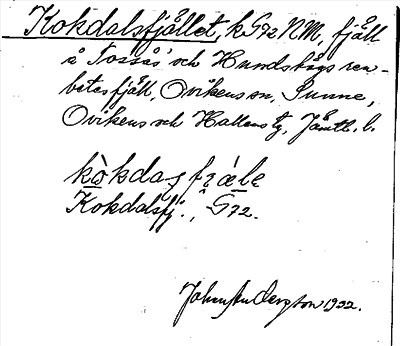 Kokdalsfjället, kG72 NM, fjäll
å Tossås' och Hundshögs ren-
betesfjäll, Ovikens sn, Sunne,
Ovikens och Hallens tg, Jämtl. l.
Kokdalsfj., G72.
John Anderzson 1932.